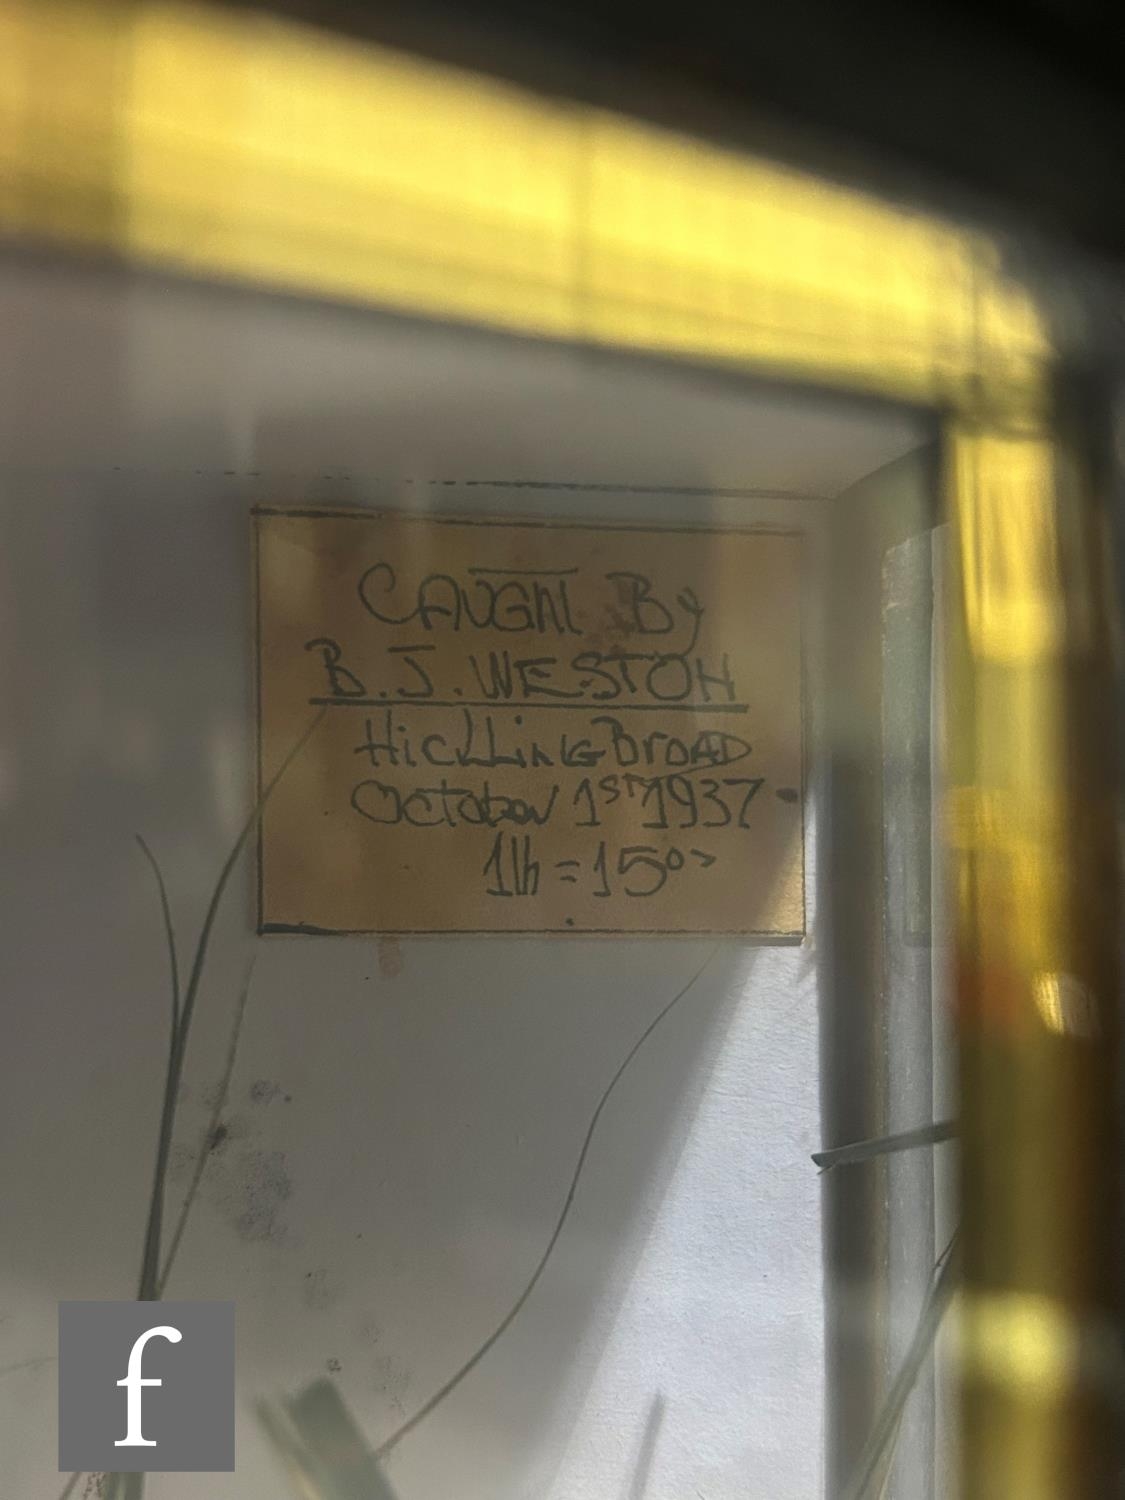 CAUGHT By
B.J.WESTON
Hickling Broad
October 1ST 1937
1lb = 15oz
f